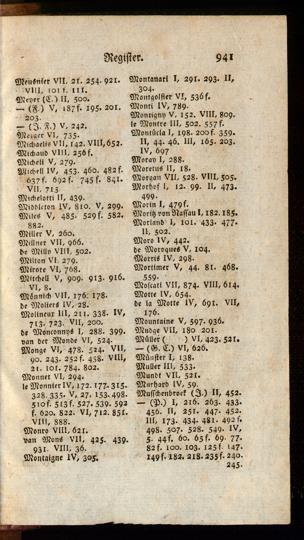 Register. 941
Meusnier VII. 21. 254. 921.
VIII, 101 f. 111.
Meyer (C.) II, 500.
— (F.) V, 187 f. 195. 201.
203.
— (J. F.) V, 242.
Mezger VI, 735.
Michaelis VII, 142. VIII, 652.
Michaud VIII, 256 f.
Michell V, 279.
Michell IV, 453. 460. 482 f.
637 f. 692 f. 745 f. 841.
VII, 713.
Michelotti II, 439.
Middleton IV, 810. V, 299.
Miles V, 485. 529 f. 582.
882.
Miller V, 260.
Millner VII, 966.
de Milly VIII, 502.
Milton VI, 279.
Mirore VI, 768.
Mitchell V, 909. 913. 916.
VI, 8.
Mönnich VII, 176. 178.
de Moivers IV, 28.
Molineux III, 211. 338. IV,
713. 723. VII, 200.
de Monconnys I, 288. 399.
van der Monde VI, 524.
Monge VI, 478. 524. VII,
90. 243. 252 f. 458. VIII,
21. 101. 784. 802.
Monnet VI, 294.
le Monnier IV, 172. 177. 315.
328. 335. V, 27. 153. 498.
510 f. 513 f. 527. 539. 592
f. 620. 822. VI, 712. 851.
VIII, 888.
Monro VIII, 621.
van Mons VII, 425. 439.
931. VIII, 36.
Montaigne IV, 305.
Montanari I, 291. 293. II,
304.
Montgolfier VI, 536 f.
Monti IV, 789.
Montigny V, 152. VIII, 809.
le Montre III, 502. 557 f.
Montücla I, 198. 200 f. 359.
II, 44. 46. III, 165. 203.
IV, 697
Moray I, 288.
Moretus II, 18.
Morgan VII, 528. VIII, 505.
Morhof I, 12. 99. II, 473.
499.
Morin I, 479 f.
Moritz von Nassau I, 182. 185.
Morland I, 101. 433. 477.
II, 502.
Moro IV, 442.
de Moroques V, 104.
Morris IV, 298.
Mortimer V, 44. 81. 468.
559.
Moscati VII, 874. VIII, 614.
Motte IV, 654.
de la Motte IV, 691. VII,
176.
Mountaine V, 597. 936.
Mudge VII, 180. 201.
Müller ( ) VI, 423. 521.
— (G. C.) VI, 626.
Münster I, 138.
Muller III, 533.
Mundt VII, 521.
Murhard IV, 59.
Musschenbroek (J.) II, 452.
— (P.) I, 216. 263. 433.
456. II, 251. 447. 452.
III, 173. 434. 481. 492 f.
498. 507. 528. 549. IV,
5. 44 f. 60. 65 f. 69. 77.
82 f. 100. 103. 125 f. 147.
149 f. 182. 218. 235 f. 240.
245.